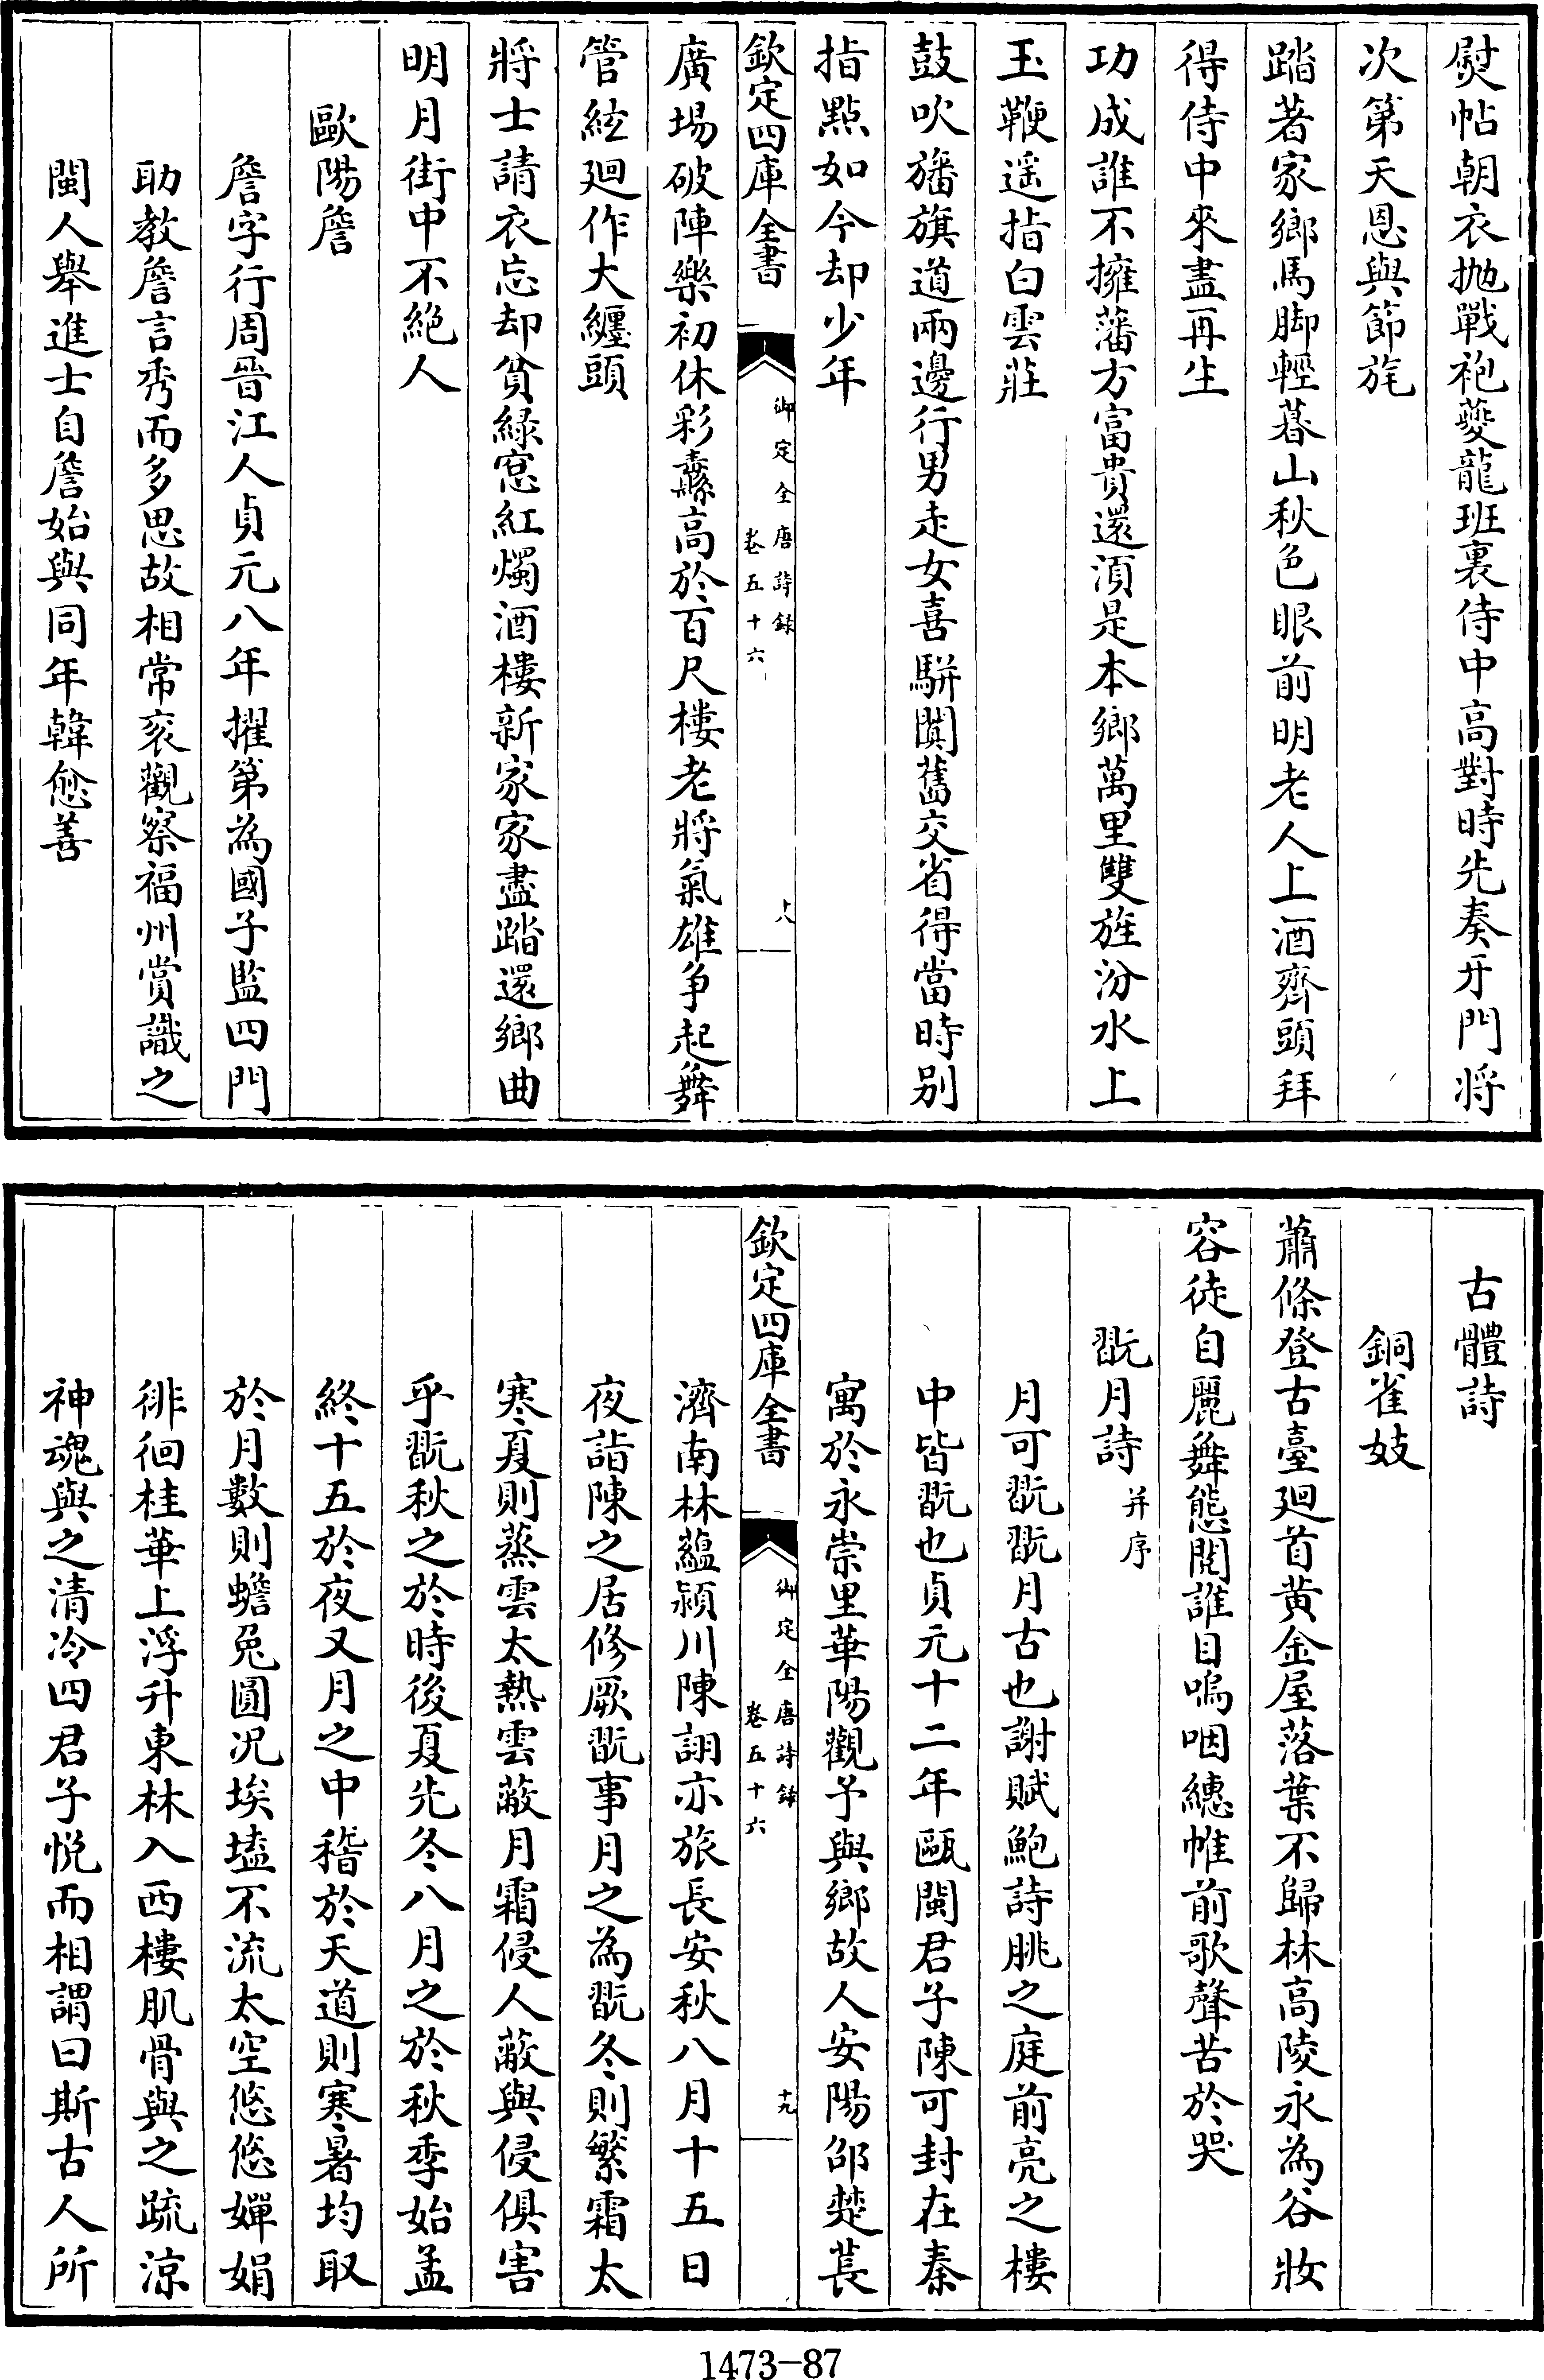 熨帖朝衣抛戰袍夔龍班裏侍中高對時先奏牙門将
次第天恩與節旄
踏著家鄉馬脚輕暮山秋色眼前明老人上酒齊頭拜
得侍中來盡再生
功成誰不擁藩方富貴還湏是本鄉萬里雙旌汾水上
玉鞭遥指白雲莊
鼓吹旛旗道兩邊行男走女喜駢闐舊交省得當時别
指點如今却少年
欽定四庫全書
御定全唐詩録
卷五十六
十八
廣場破陣樂初休彩纛高於百尺樓老將氣雄争起舞
管絃廻作大纏頭
將士請衣忘却貧緑窓紅燭酒樓新家家盡踏還鄉曲
明月街中不絶人
歐陽詹
詹字行周晉江人貞元八年擢第為國子監四門
助教詹言秀而多思故相常衮觀察福州賞識之
閩人舉進士自詹始與同年韓愈善
古體詩
銅雀妓
蕭條登古臺廻首黄金屋落葉不歸林高陵永為谷妝
容徒自麗舞態閱誰目嗚咽繐帷前歌聲苦於哭
翫月詩并序
月可翫翫月古也謝賦鮑詩朓之庭前亮之樓
中皆翫也貞元十二年甌閩君子陳可封在秦
寓於永崇里華陽觀予與鄉故人安陽邵楚萇
欽定四庫全書
御定全唐詩録
卷五十六
十九
濟南林藴潁川陳詡亦旅長安秋八月十五日
夜詣陳之居修厥翫事月之為翫冬則繁霜太
寒夏則蒸雲太熱雲蔽月霜侵人蔽與侵俱害
乎翫秋之於時後夏先冬八月之於秋季始孟
終十五於夜又月之中稽於天道則寒暑均取
於月數則蟾兔圓况埃壒不流太空悠悠嬋娟
徘徊桂華上浮升東林入西樓肌骨與之疏涼
神魂與之清冷四君子悦而相謂曰斯古人所
1473-87